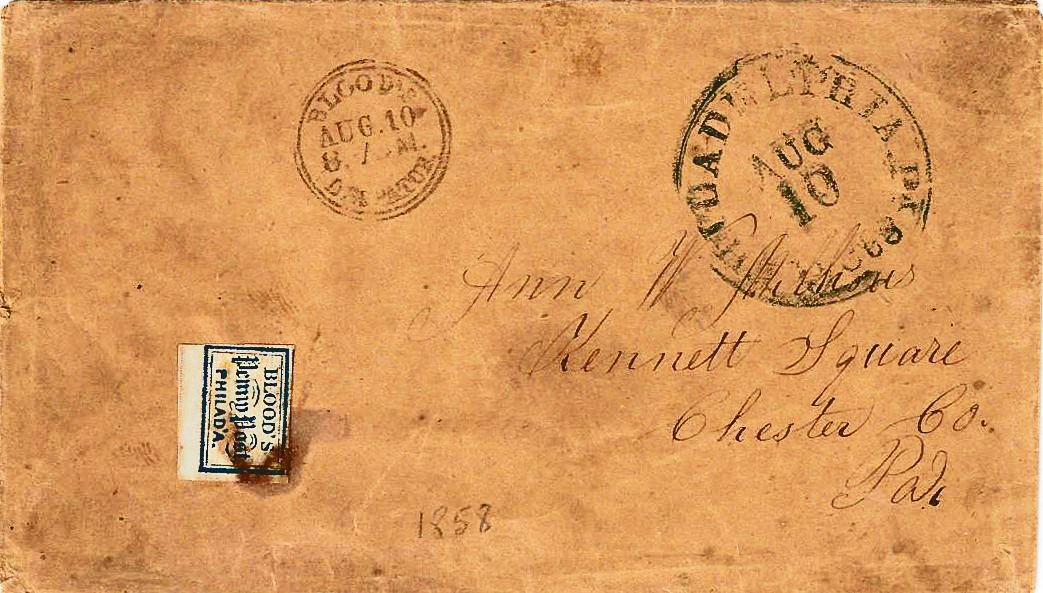 BLOOD'S
AUG. 10
8. M.
PHILADELPHIA Pa
AUG
10
Ann W
Kennett Square
Chester Co.
Pa.
BLOOD'S
Penny Post
PHILAD'A.
1858